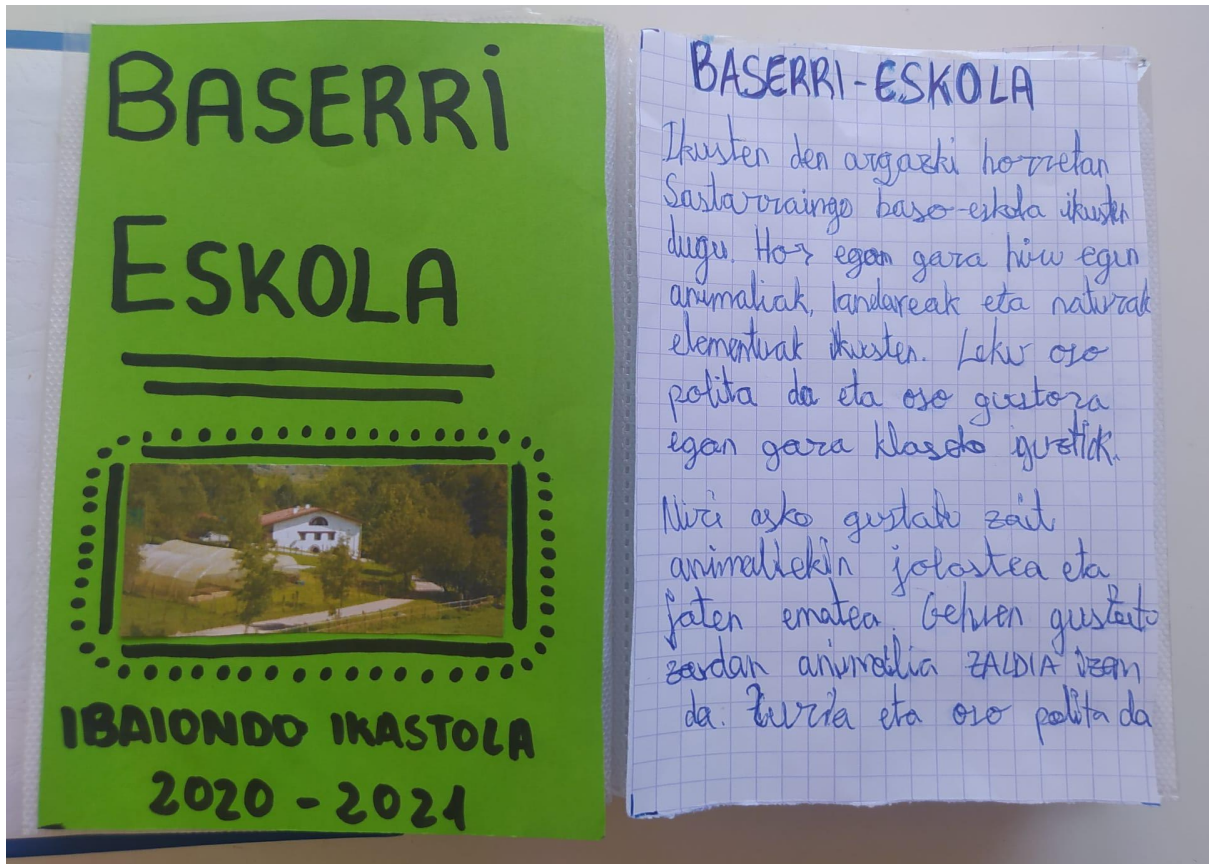 BASERRI
ESKOLA
IBAIONDO IKASTOLA
2020 - 2021
BASERRI-ESKOLA
Ikusten den argazki horretan
Sastarraingo baso-eskola ikusten
dugu. Hor egon gara hiru egun
animaliak, landareak eta naturak
elementuak ikusten. Leku oso
polita da eta oso gustora
egon gara klaseko guztiok.
Niri asko gustatu zait
animaliekin jolastea eta
jaten ematea. Gehien gustato
zaidan animalia ZALDIA izan
da. Zuria eta oso polita da